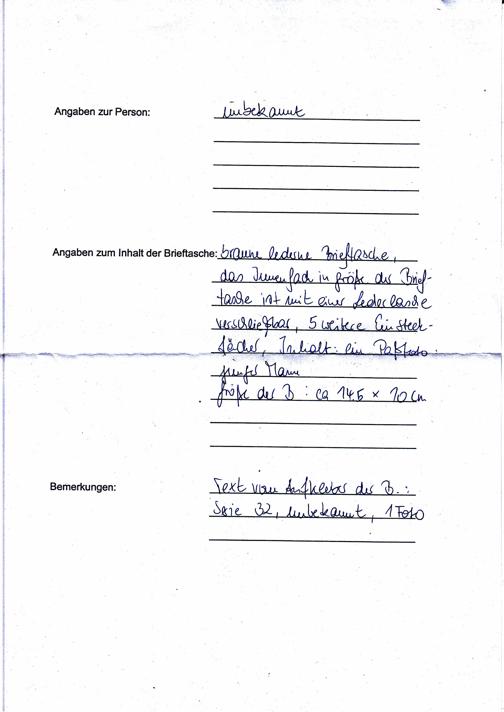 Angaben zur Person: unbekannt
Angaben zum Inhalt der Brieftasche: braune lederne Brieftasche,
das Innenfach in Größe der Brief-
tasche ist mit einer Lederlasche
verschließbar, 5 weitere Einsteck-
fächer, Inhalt: ein Paßfoto
junger Mann
Größe der B : ca 14,5 x 10 cm
Bemerkungen: Text vom Aufkleber der B.:
Serie 32, unbekannt, 1 Foto